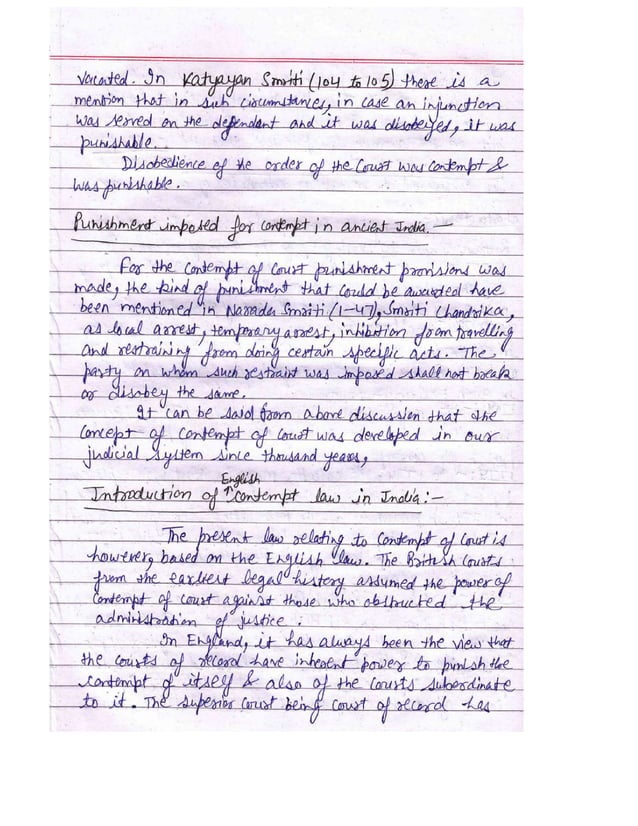 vacated. In Katyayan Smriti (104 to 105) there is a
mention that in such circumstances, in case an injunction
was served on the defendant and it was disobeyed, it was
punishable.
Disobedience of the order of the Court was Contempt &
was punishable.
Punishment imposed for contempt in ancient India. —
For the contempt of court punishment provisions was
made, the kind of punishment that could be awarded have
been mentioned in Narada Smriti (1-47), Smriti Chandrika,
as local arrest, temporary arrest, inhibition from travelling
and restraining from doing certain specific acts. The
party on whom such restraint was imposed shall not break
or disobey the same.
It can be said from above discussion that the
concept of contempt of court was developed in our
judicial system since thousand years,
Introduction of ↑English contempt law in India:-
The present law relating to contempt of court is
however, based on the English law. The British Courts
from the earliest legal history assumed the power of
contempt of court against those who obstructed the
administration of justice.
In England, it has always been the view that
the courts of record have inherent power to pinish the
contempt of itself & also of the courts subordinate
to it. The superior court being court of record has